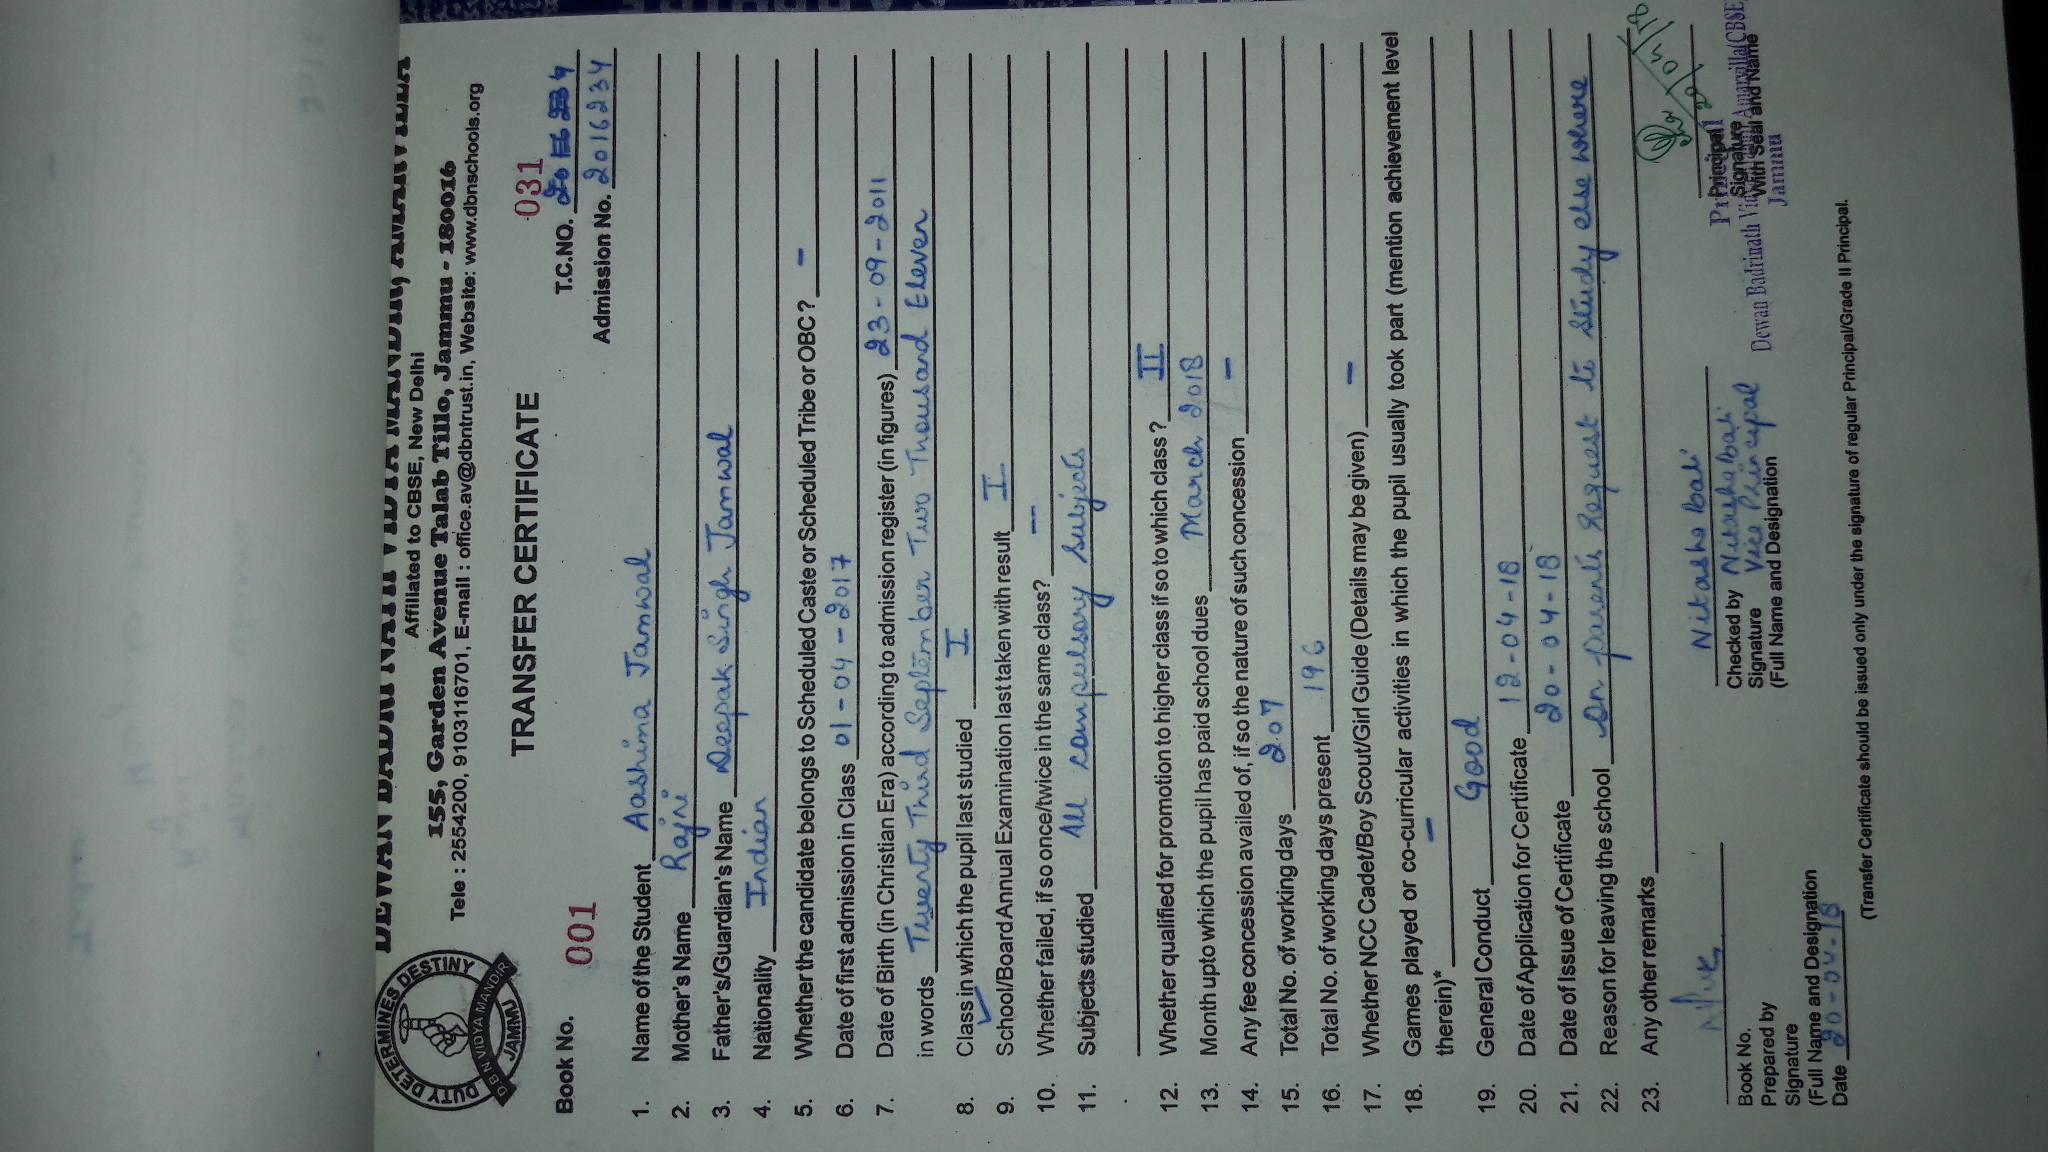 DEWAN BADRI NATH VIDYA MANDIR, AMARVILLA
Affiliated to CBSE, New Delhi
155, Garden Avenue Talab Tillo, Jammu - 180016
Tele : 2554200, 9103116701, E-mail : office.av@dbntrust.in, Website: www.dbnschools.org
DUTY DETERMINES DESTINY
DBN VIDYA MANDIR
JAMMU
TRANSFER CERTIFICATE
031
Book No. 001 T.C.NO.
Admission No. 2016234
1. Name of the Student Aashima Jamwal
2. Mother's Name Rajni
3. Father's/Guardian's Name Deepak Singh Jamwal
4. Nationality Indian
5. Whether the candidate belongs to Scheduled Caste or Scheduled Tribe or OBC? -
6. Date of first admission in Class 01-04-2017
7. Date of Birth (in Christian Era) according to admission register (in figures) 23-09-2011
in words Twenty Third September Two Thousand Eleven
8. Class in which the pupil last studied I
9. School/Board Annual Examination last taken with result I
10. Whether failed, if so once/twice in the same class? --
11. Subjects studied All compulsory subjects
12. Whether qualified for promotion to higher class if so to which class? II
13. Month upto which the pupil has paid school dues March 2018
14. Any fee concession availed of, if so the nature of such concession -
15. Total No. of working days 207
16. Total No. of working days present 196
17. Whether NCC Cadet/Boy Scout/Girl Guide (Details may be given) -
18. Games played or co-curricular activities in which the pupil usually took part (mention achievement level
therein)* -
19. General Conduct Good
20. Date of Application for Certificate 12-04-18
21. Date of Issue of Certificate 20-04-18
22. Reason for leaving the school On parents request to study else where
23. Any other remarks
Nitasha bali
Book No.
Prepared by
Signature
(Full Name and Designation
Date 20-04-18
Checked by Nitasha Bali
Signature Vice Principal
(Full Name and Designation
Principal
Signature
With Seal and Name
Principal
Dewan Badrinath Vidya Mandir Amarvilla(CBSE
Jammu
(Transfer Certificate should be issued only under the signature of regular Principal/Grade II Principal.